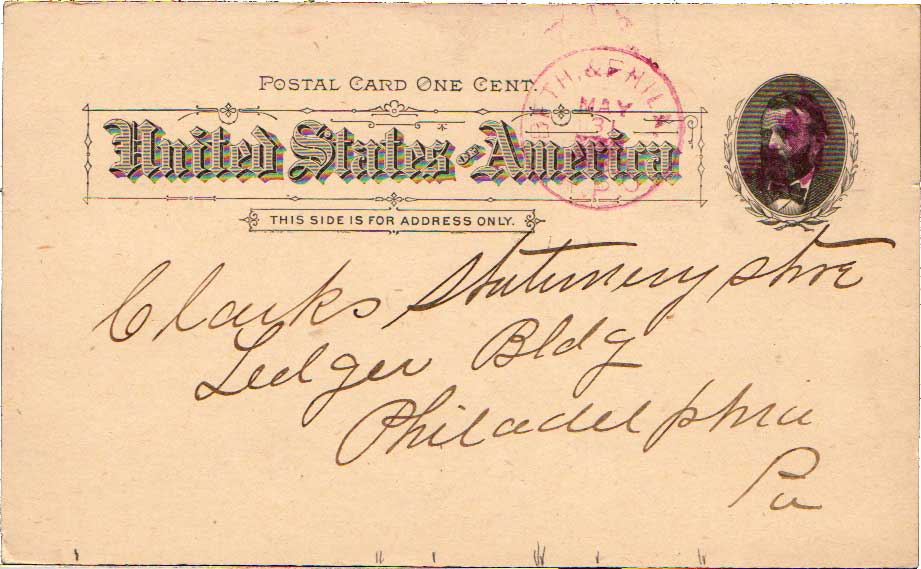 POSTAL CARD ONE CENT.
BETH. & PHILA
MAY
R.P.O.
United States of America
THIS SIDE IS FOR ADDRESS ONLY.
Clarks Stationery store
Ledger Bldg
Philadelphia
Pa